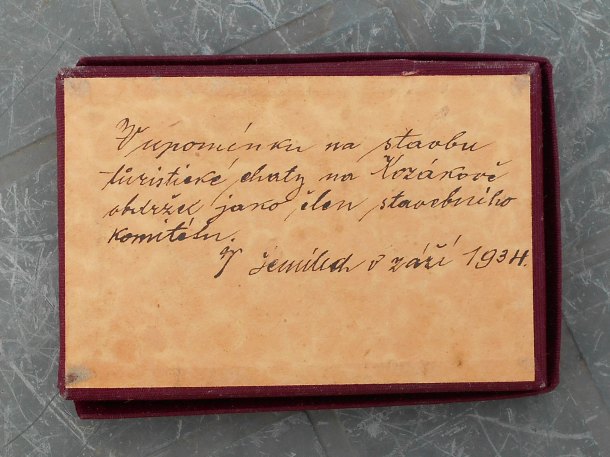 V upomínku na stavbu
túristické chaty na Kozákově
obdržel jako člen stavebního
komitétu.
V Semilech v září 1934.